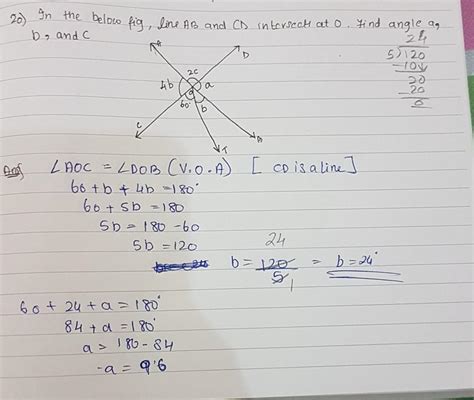 20) In the below fig, line AB and CD intersect at O. Find angle a,
b, and c
24
5)120
-10↓
20
-20
0
D
2c
4b
a
60
b
C
T
A
Ans) ∠AOC = ∠DOB (V.O.A) [CD is a line]
60 + b + 4b = 180°
60 + 5b = 180
5b = 180 - 60
5b = 120
24
b = 120 = b = 24°
5 1
60 + 24 + a = 180°
84 + a = 180°
a = 180 - 84
-a = 96